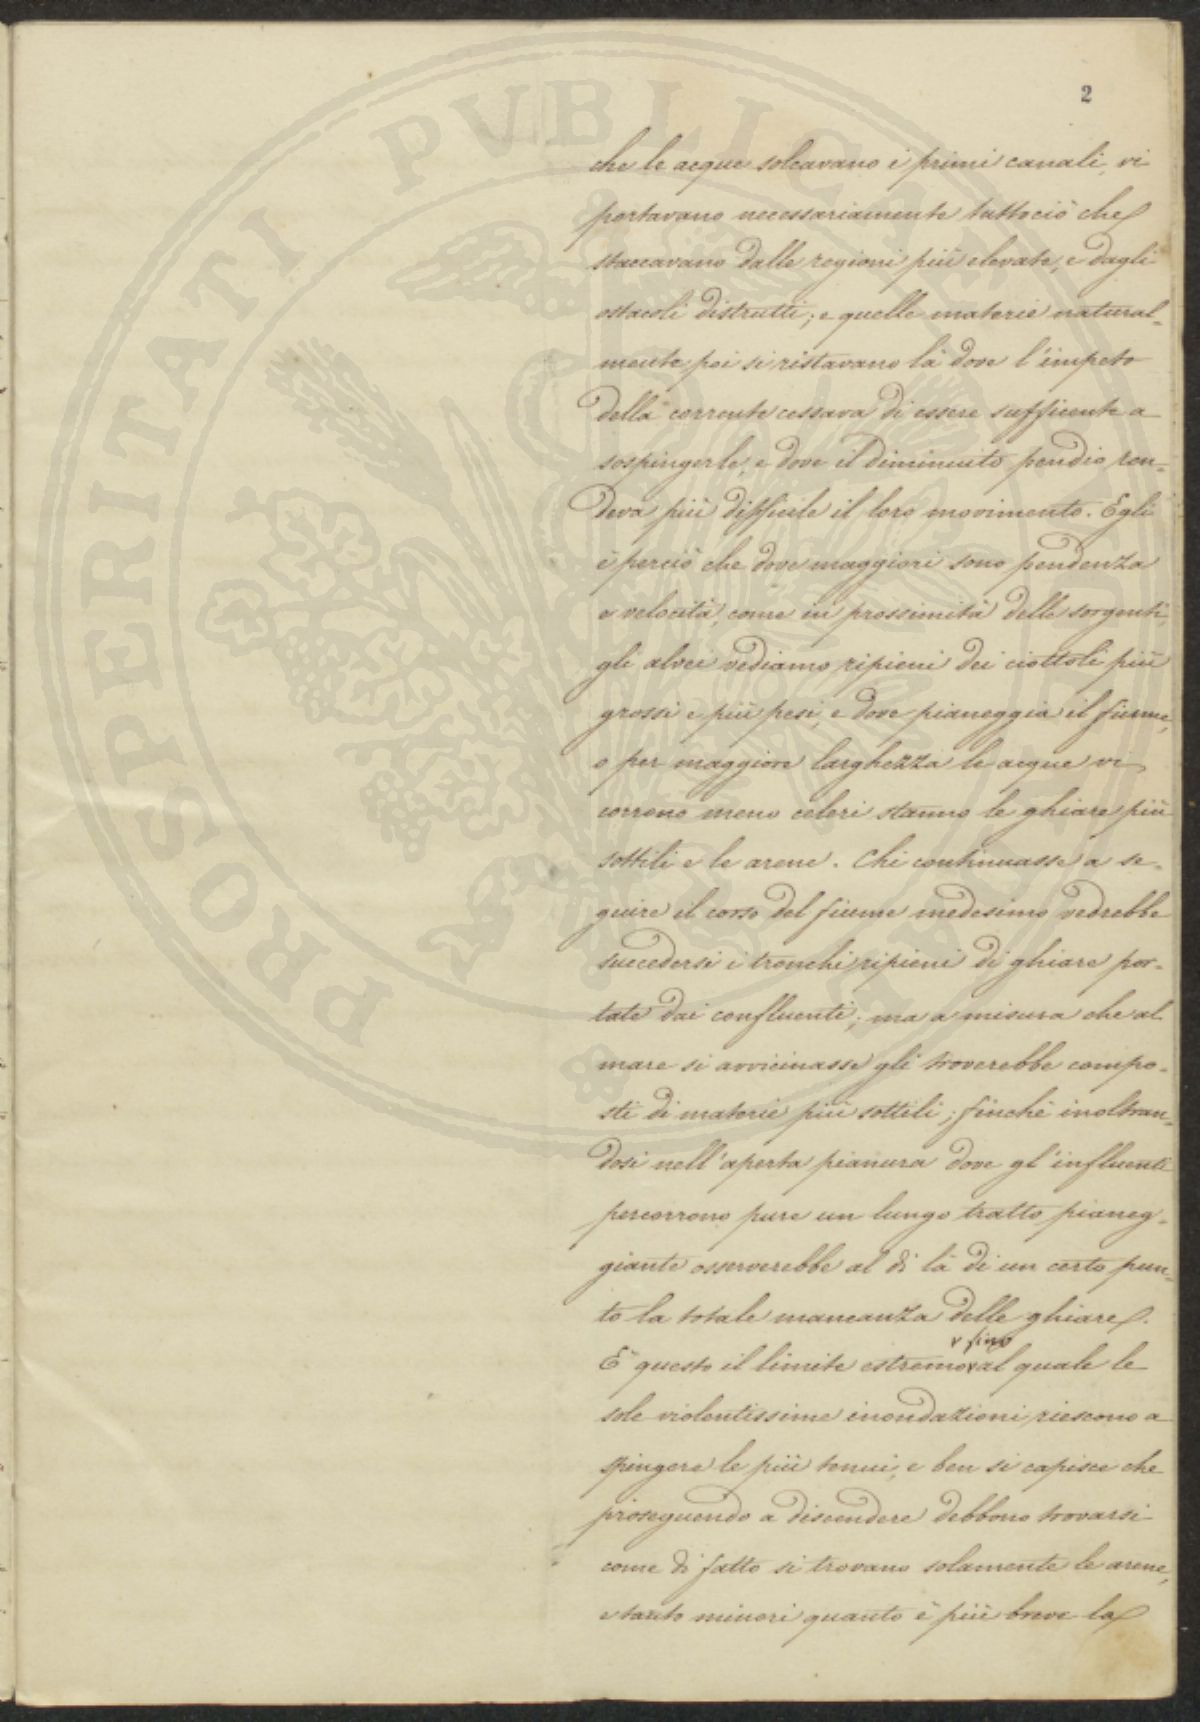 2
PROSPERITATI PVBLICAE
che le acque solcavano i primi canali, vi
portavano necessariamente tuttociò che
staccavano dalle regioni più elevate, e dagli
ostacoli distrutti; e quelle materie natural-
mente poi si ristavano là dove l'impeto
della corrente cessava di essere sufficente a
sospingerle, e dove il diminuito pendio ren-
deva più difficile il loro movimento. Egli
è perciò che dove maggiori sono pendenza
e velocità, come in prossimità delle sorgenti,
gli alvei vediamo ripieni dei ciottoli più
grossi e più pesi, e dove pianeggia il fiume,
o per maggiore larghezza le acque vi
corrono meno celeri stanno le ghiare più
sottili e le arene. Chi continuasse a se-
guire il corso del fiume medesimo vedrebbe
succedersi i tronchi ripieni di ghiare por-
tate dai confluenti; ma a misura che al
mare si avvicinasse gli troverebbe compo-
sti di materie più sottili; finchè inoltran-
dosi nell'aperta pianura dove gl'influenti
percorrono pure un lungo tratto pianeg-
giante osserverebbe al di là di un certo pun-
to la totale mancanza delle ghiare.
fino
È questo il limite estremo al quale le
sole violentissime inondazioni riescono a
spingere le più tenui, e ben si capisce che
proseguendo a discendere debbono trovarsi
come di fatto si trovano solamente le arene,
e tanto minori quanto è più breve la